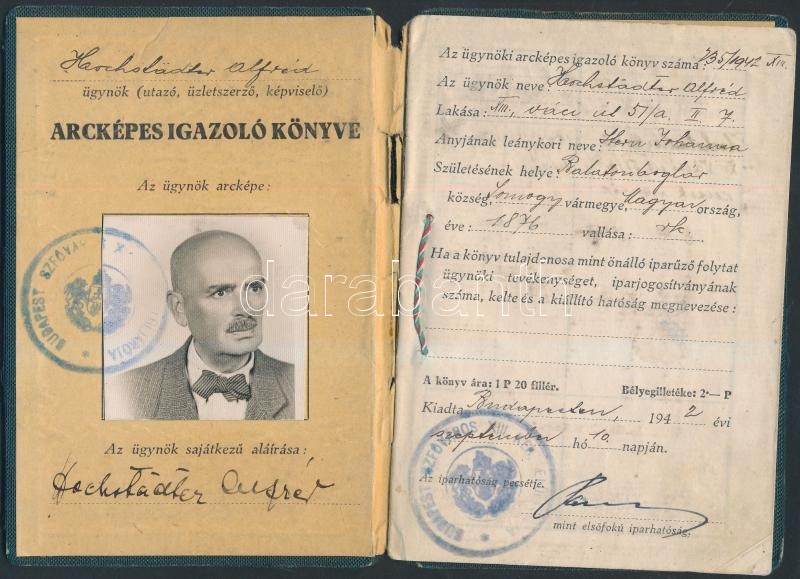 Hochstädter Alfréd
ügynök (utazó, üzletszerző, képviselő)
ARCKÉPES IGAZOLÓ KÖNYVE
Az ügynök arcképe:
Az ügynök sajátkezű aláírása:
Hochstädter Alfréd
Az ügynöki arcképes igazoló könyv száma: 735/1942 XIII.
Az ügynök neve: Hochstädter Alfréd
Lakása: XIII., váci út 51/a. II. 7.
Anyjának leánykori neve: Stern Johanna
Születésének helye: Balatonboglár
község, Somogy vármegye, Magyar ország,
éve: 1876 vallása: rk.
Ha a könyv tulajdonosa mint önálló iparűző folytat
ügynöki tevékenységet, iparjogosítványának
száma, kelte és a kiállító hatóság megnevezése:
A könyv ára: 1 P 20 fillér. Bélyegilletéke: 2·— P
Kiadta Budapesten, 1942 évi
szeptember hó 10 napján.
Az iparhatóság pecsétje.
mint elsőfokú iparhatóság.
BUDAPEST SZFŐV
BUDAPEST SZFŐVÁROS XIII. KER.
darabanth